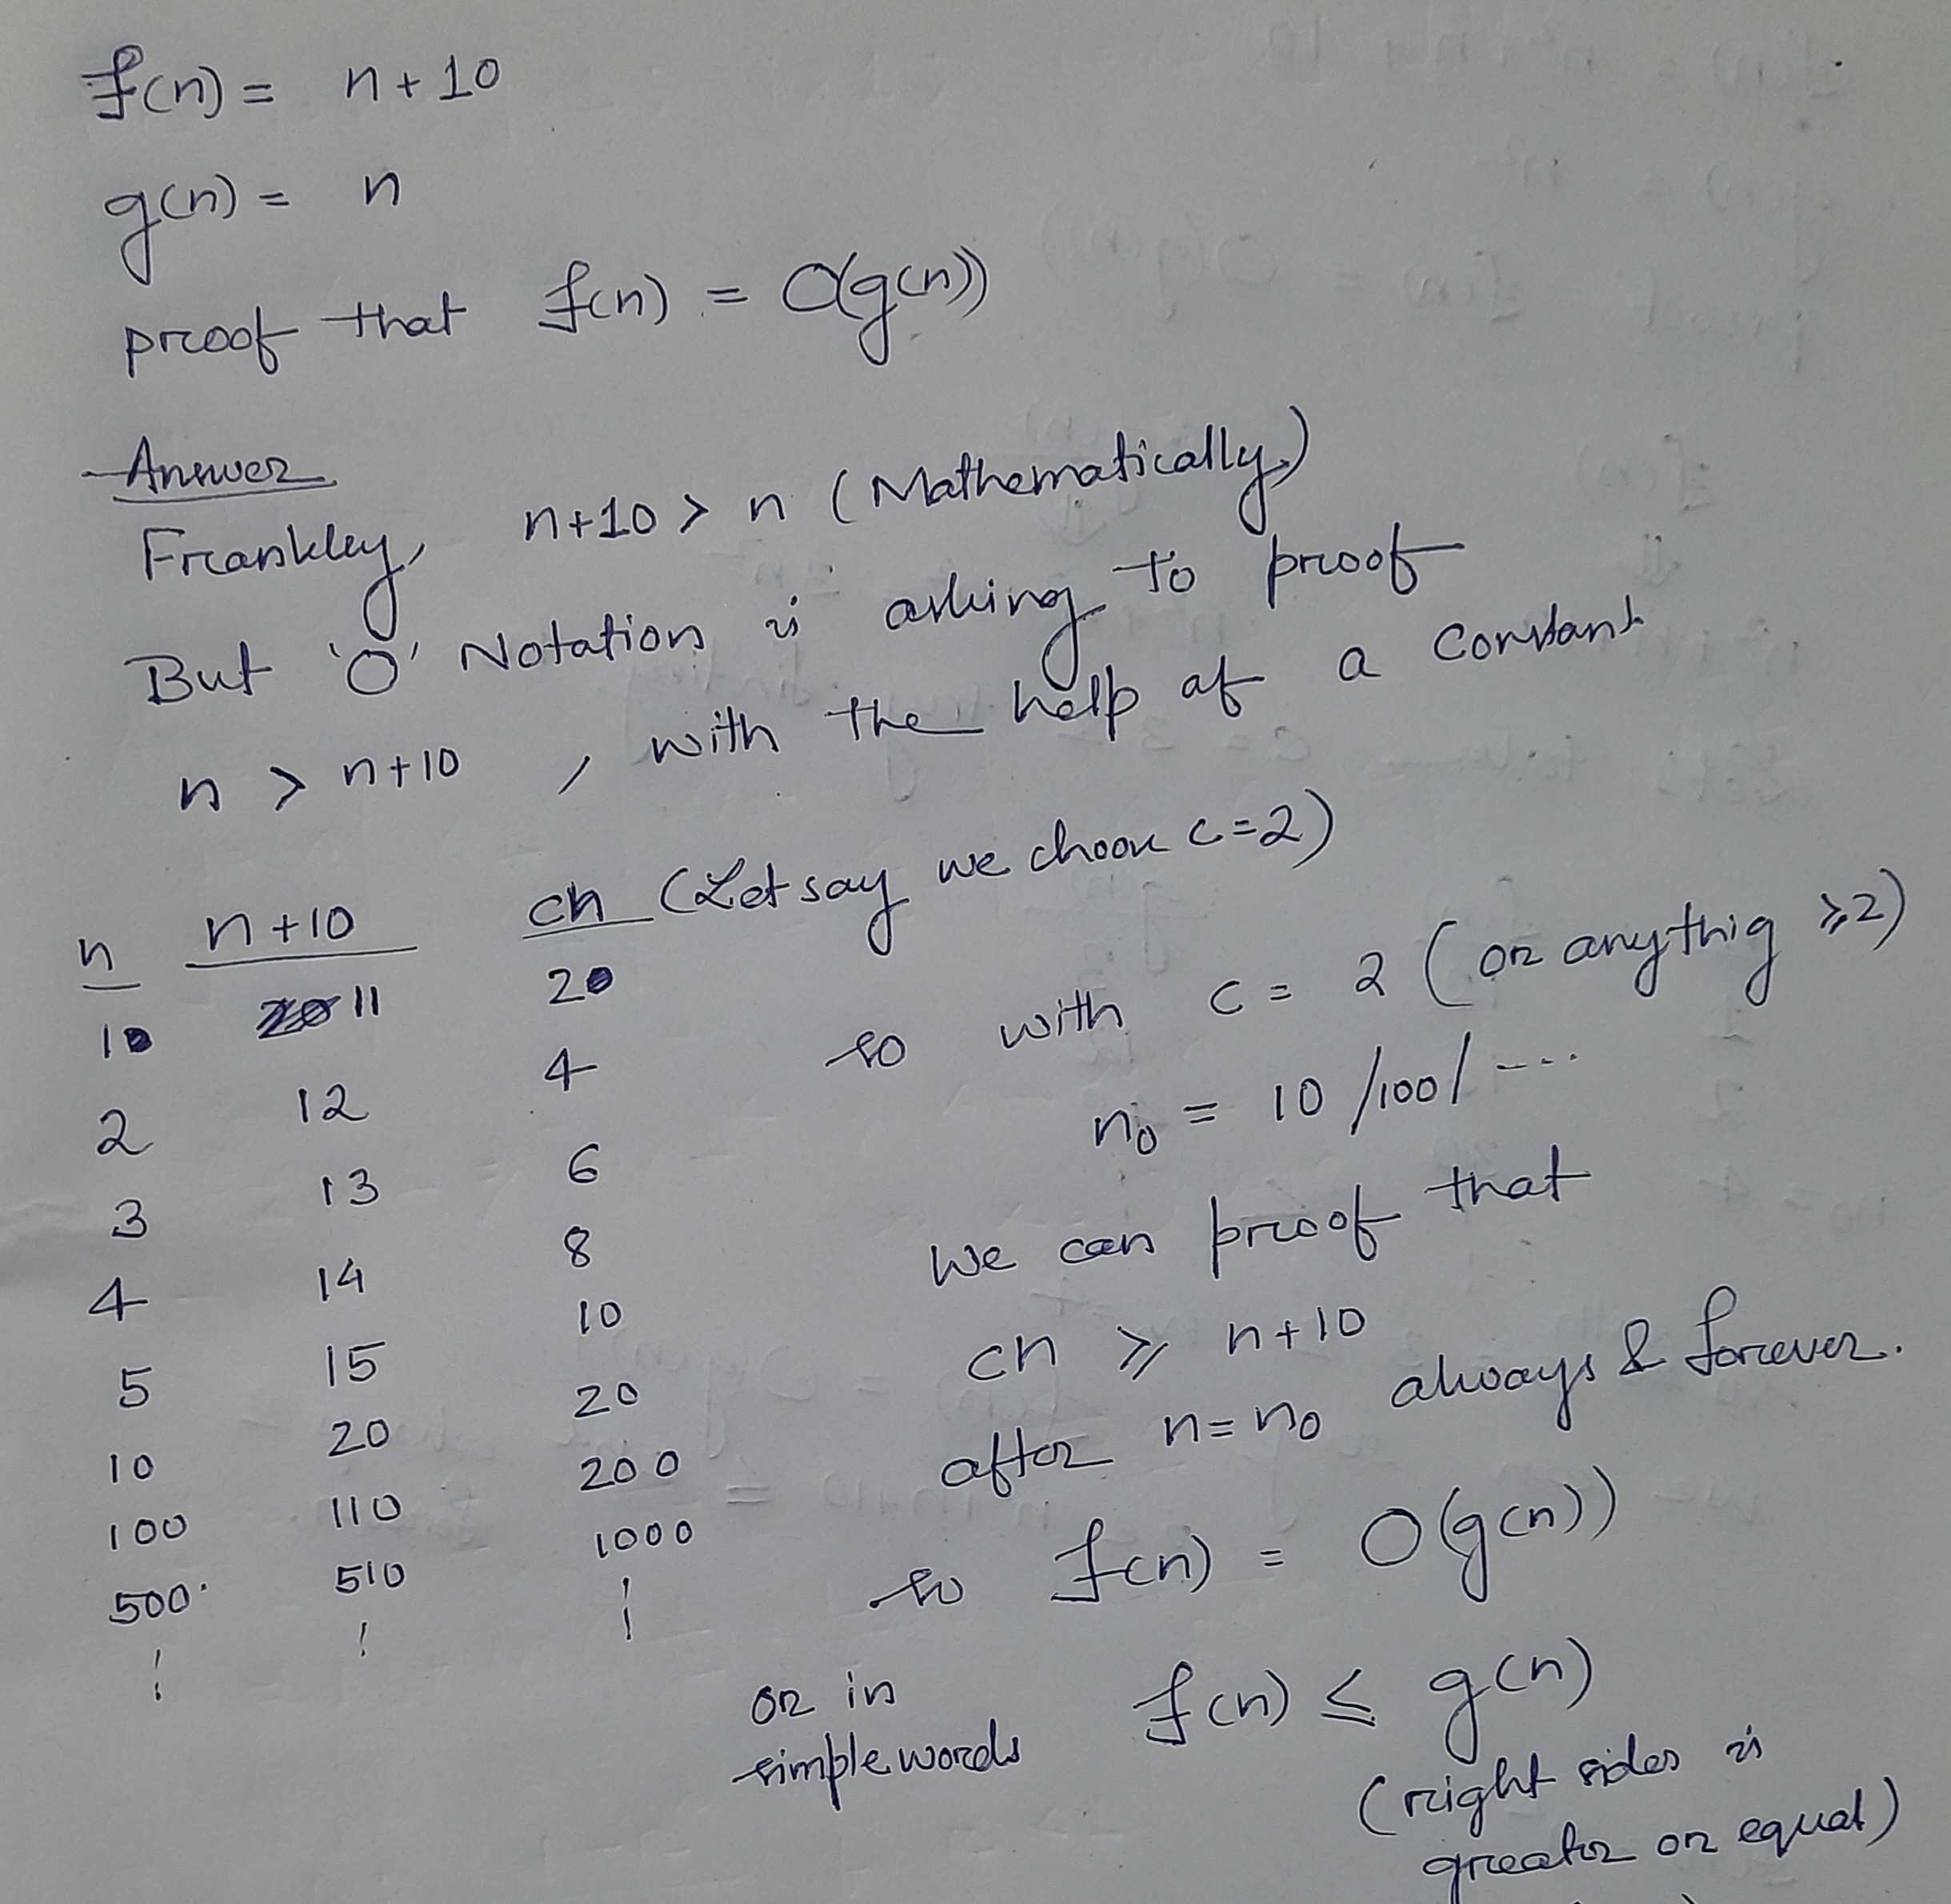 f(n) = n + 10
g(n) = n
proof that f(n) = O(g(n))
Answer
Frankley, n+10 > n (Mathematically)
But 'O' Notation is asking to proof
n > n+10 , with the help of a constant
n n+10 cn (Let say we choose c=2)
1 11 2
2 12 4
3 13 6
4 14 8
5 15 10
10 20 20
100 110 200
500 510 1000
so with c = 2 (or anythig ≥2)
n₀ = 10 /100/ ....
we can proof that
cn ≥ n+10
after n=n₀ always & forever.
so f(n) = O(g(n))
or in
simple words f(n) ≤ g(n)
(right sides is
greater or equal)